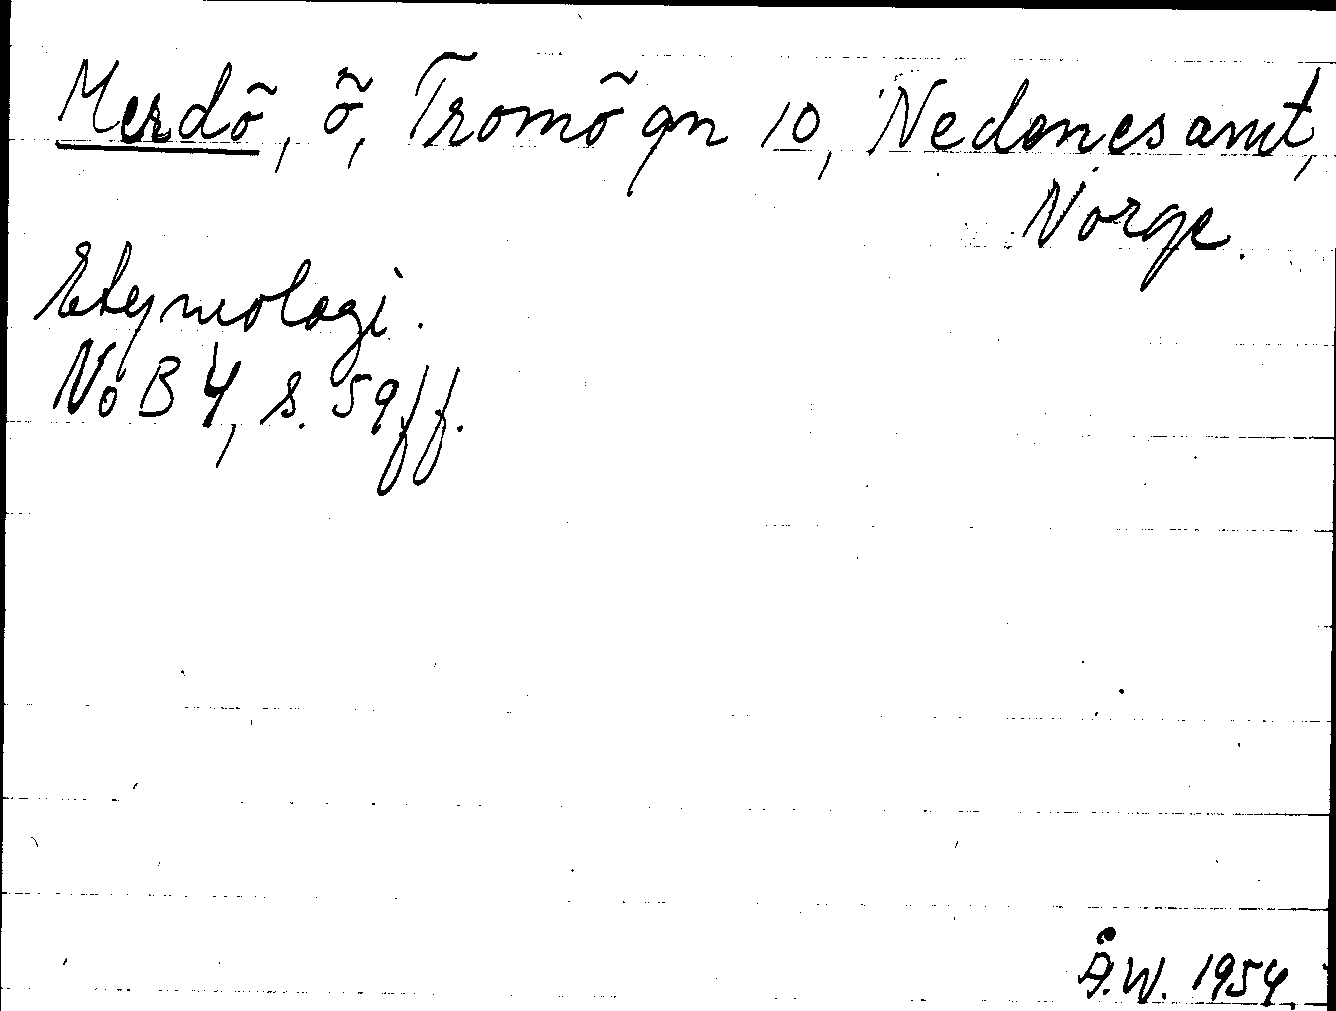 Merdö, ö, Tromö gn 10, Nedenes amt,
Norge.
Etymologi.
NoB 4, s. 59 ff.
Å.W. 1954.